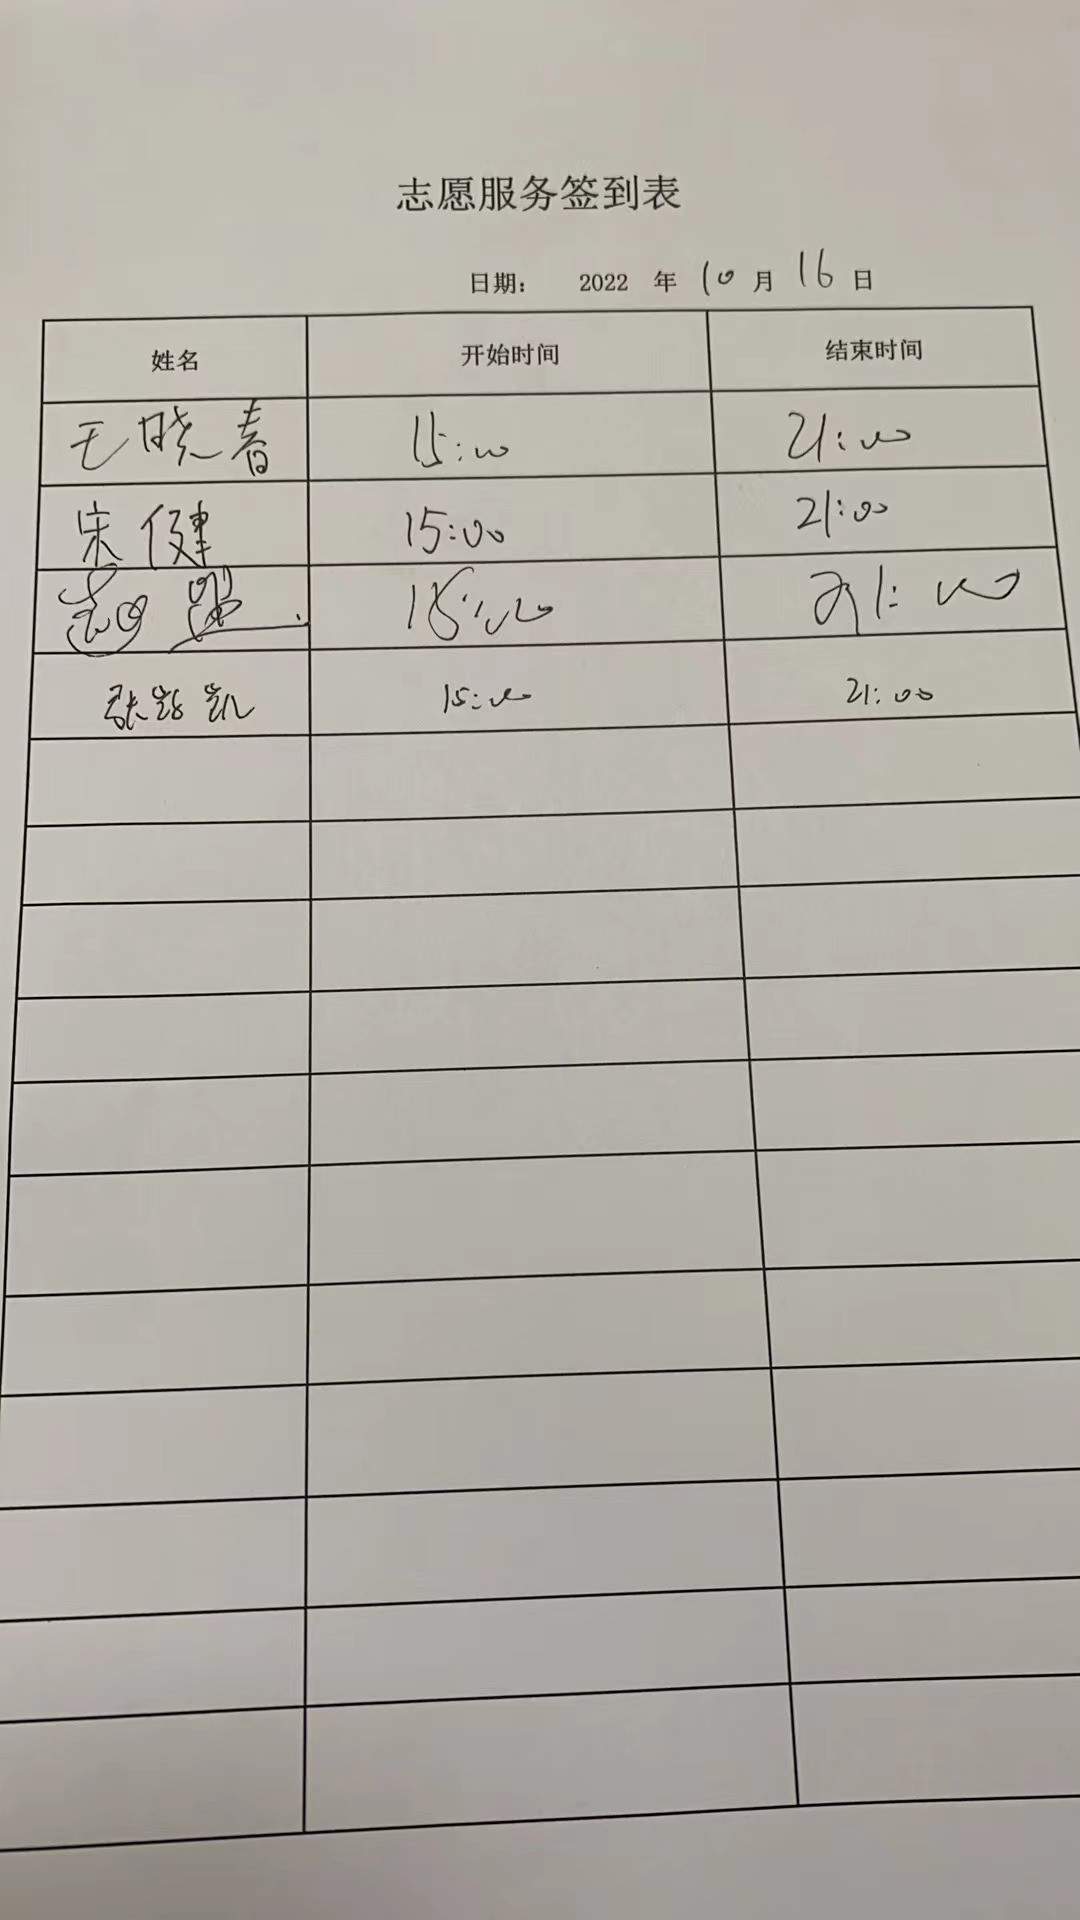 志愿服务签到表
日期： 2022 年 10 月 16 日
姓名 开始时间 结束时间
王晓春 15:00 21:00
宋健 15:00 21:00
15:00 21:00
张 凯 15:00 21:00